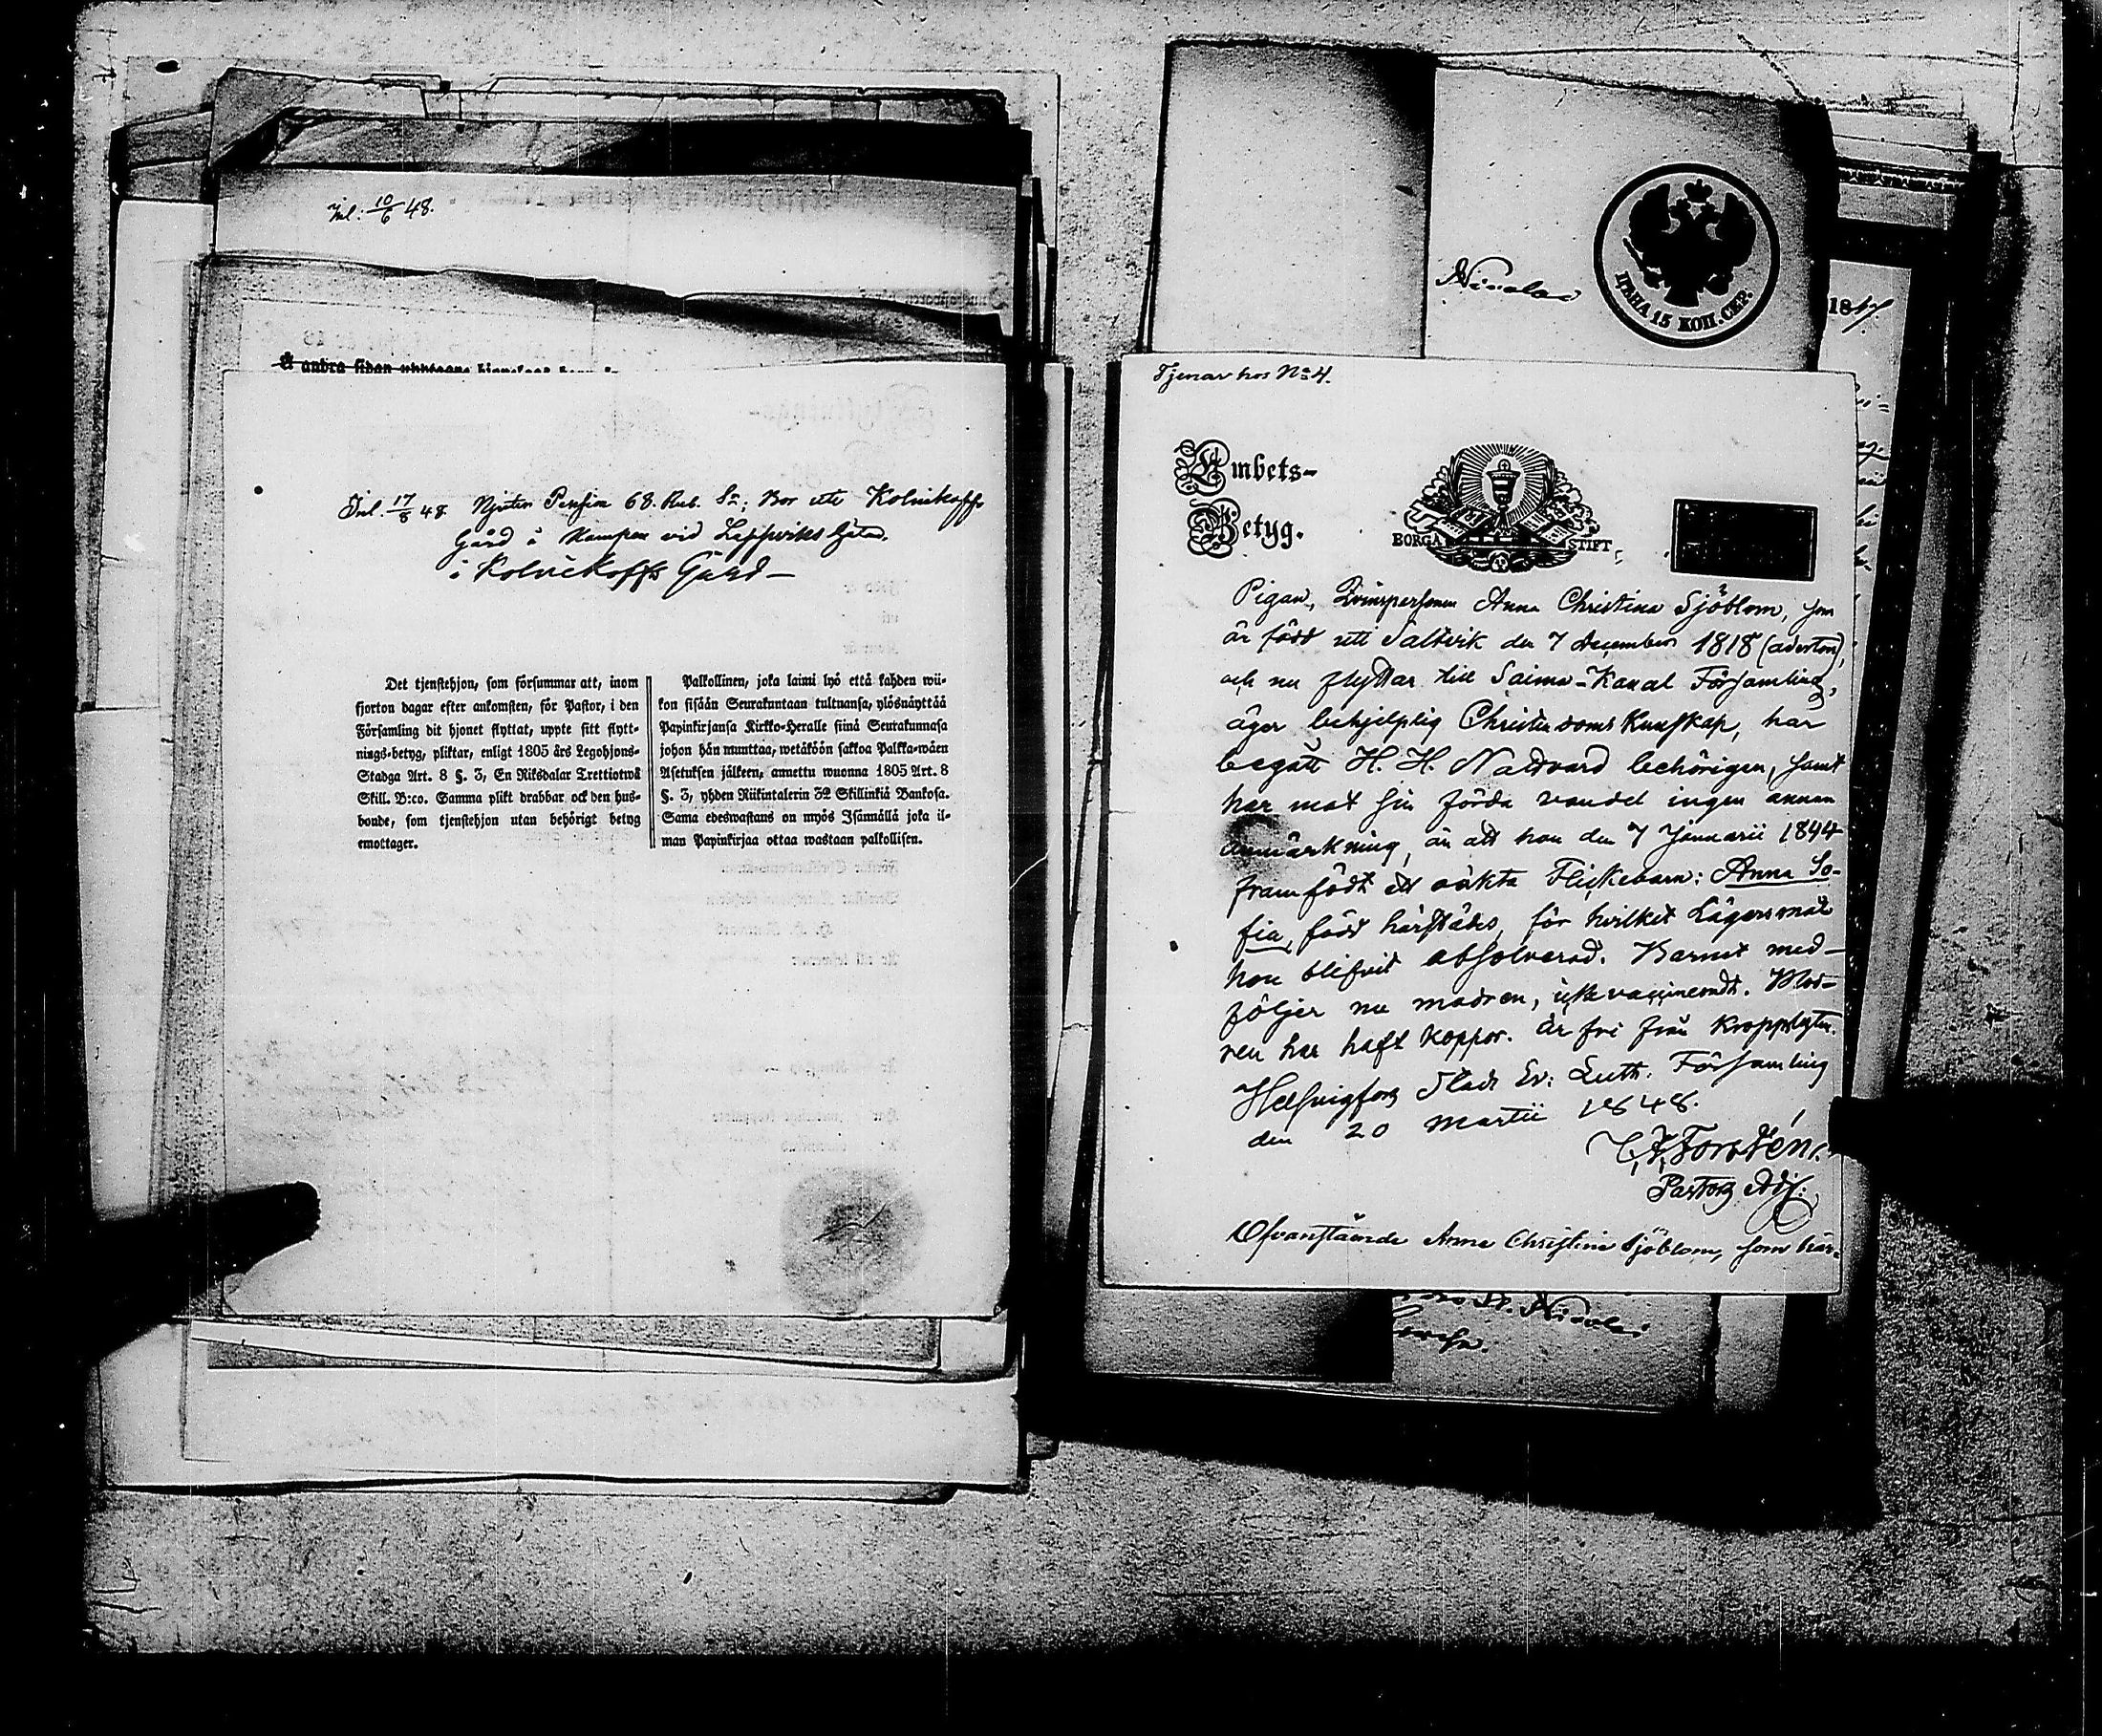 Inl: 10/6 48.
Inl. 17/8 48. Njuter Pension 68. Rub. Sr; Bor uti Kolnikoffs
Gård å Kampen vid Lappviks Gatan.
i Kolnikoffs Gård —
Det tjenstehjon, som försummar att, inom
fjorton dagar efter ankomsten, för Pastor, i den
Församling dit hjonet flyttat, uppte sitt flytt-
nings-betyg, pliktar, enligt 1805 års Legohjons-
Stadga Art. 8 §. 3, En Riksdalar Trettiotwå
Skill. B:co. Samma plikt drabbar ock den hus-
bonde, som tjenstehjon utan behörigt betyg
emottager.
Palkollinen, joka laimi lyö että kahden wii-
kon sisään Seurakuntaan tultuansa, ylösnäyttää
Papinkirjansa Kirkko-Heralle siinä Seurakunnasa
johon hän muuttaa, wetäköön sakkoa Palkka-wäen
Asetuksen jälkeen, annettu wuonna 1805 Art. 8
§. 3, yhden Riikintalerin 32 Skillinkiä Bankosa.
Sama edeswastaus on myös Isännällä joka il-
man Papinkirjaa ottaa wastaan palkollisen.
Nicolai
ЦѢНА 15 КОП. СЕР.
1847
Tjenar hos No 4.
Embets-
Betyg.
BORGÅ STIFT
Pigan, Qvinspersonen Anna Christina Sjöblom, som
är född uti Saltvik den 7 December 1818 (aderton),
och nu flyttar till Saima-Kanal Församling,
äger behjelplig Christendoms Kunskap, har
begått H. H. Nattvard behörigen, samt
har mot sin förda vandel ingen annan
anmärkning, än att hon den 7 Januarii 1844
framfödt ett oäkta Flickebarn: Anna So-
fia, född härstädes, för hvilket Lägersmål
hon blifvit absolverad. Barnet med-
följer nu modren, icke vaccineradt. Mod-
ren har haft koppor. Är fri från kroppslyten.
Helsingfors Stads Ev: Luth. Församling
den 20 Martii 1848.
Forstén.
Pastors Adj:
Ofvanstående Anna Christina Sjöblom, som här-
Nicolai